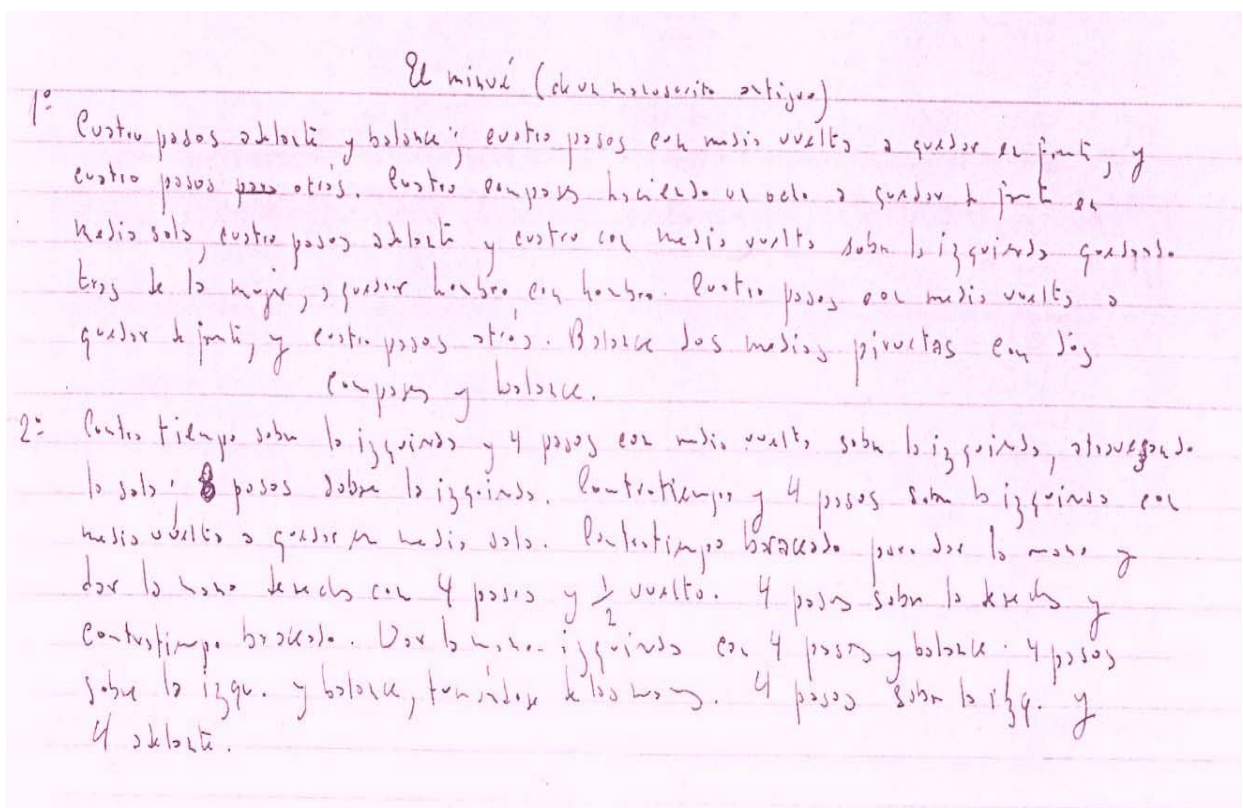 El minué (de un manuscrito antiguo)
1º
Cuatro pasos adelante y balance; cuatro pasos con media vuelta a quedar en frente, y
cuatro pasos para atrás. Cuatro compases haciendo un ocho a quedar de frente en
media sala, cuatro pasos adelante y cuatro con media vuelta sobre la izquierda quedando
tras de la mujer, a quedar hombro con hombro. Cuatro pasos con media vuelta a
quedar de frente, y cuatro pasos atrás. Balance dos medias piruetas con dos
compases y balance.
2º Contra tiempo sobre la izquierda y 4 pasos con media vuelta sobre la izquierda, atravesando
la sala; 8 pasos sobre la izquierda. Contratiempo y 4 pasos sobre la izquierda con
media vuelta a quedar en media sala. Contratiempo para dar la mano y
dar la mano derecha con 4 pasos y 1/2 vuelta. 4 pasos sobre la derecha y
contratiempo. Dar la mano izquierda con 4 pasos y balance. 4 pasos
sobre la izqu. y balance, tomándose de las manos. 4 pasos sobre la izq. y
4 adelante.